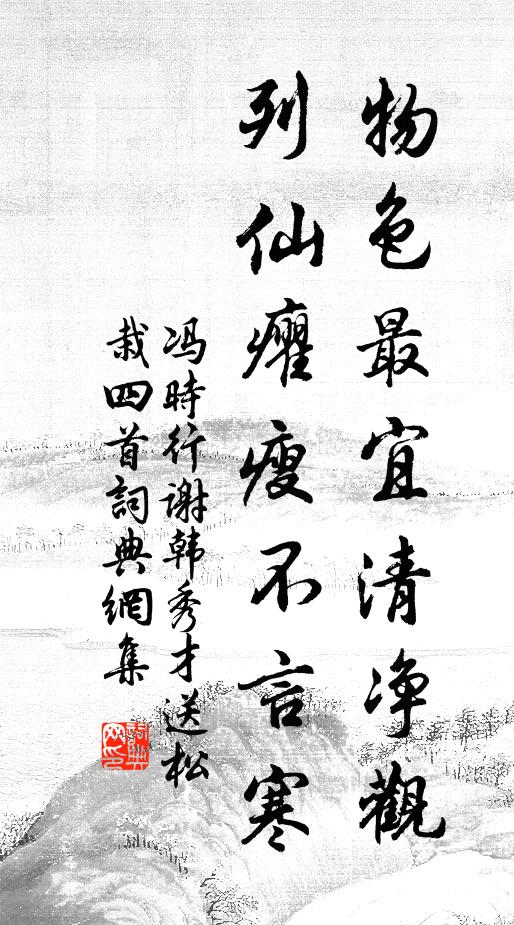 物色最宜清净觀
列仙癯瘦不言寒
冯時行谢韩秀才送松
栽四首詞典網集